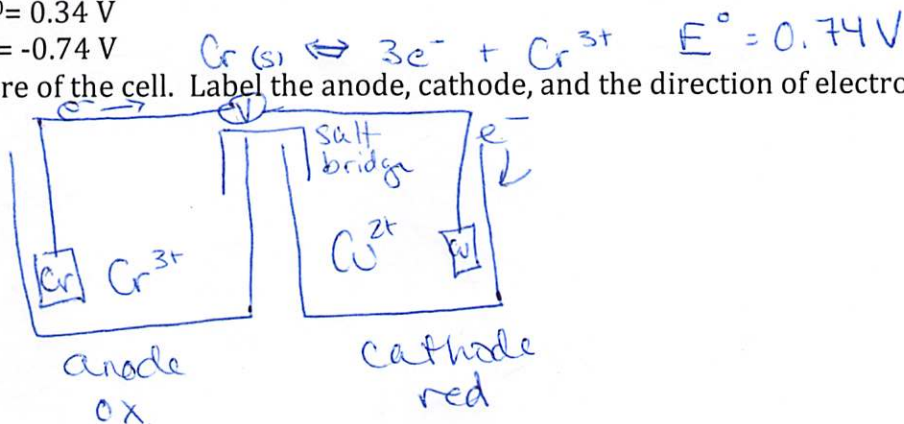 = 0.34 V
= -0.74 V Cr (s) ⇔ 3e⁻ + Cr³⁺ E° = 0.74 V
re of the cell. Label the anode, cathode, and the direction of electro
e⁻ → V
salt e⁻
bridge
Cr Cr³⁺ Cu²⁺ Cu
anode cathode
ox red